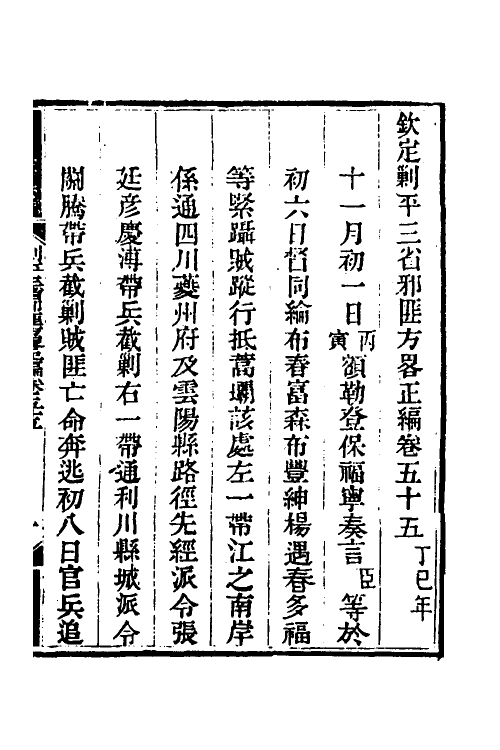 欽定剿平三省邪匪方畧正編卷五十五
丁巳年
十一月初一日丙寅額勒登保福寧奏言臣等於
初六日督同綸布春富森布豐紳楊遇春多福
等緊躡賊蹤行抵萬壩該處左一帶江之南岸
係通四川夔州府及雲陽縣路徑先經派令張
廷彥慶溥帶兵截剿右一帶通利川縣城派令
關騰帶兵截剿賊匪亡命奔逃初八日官兵追